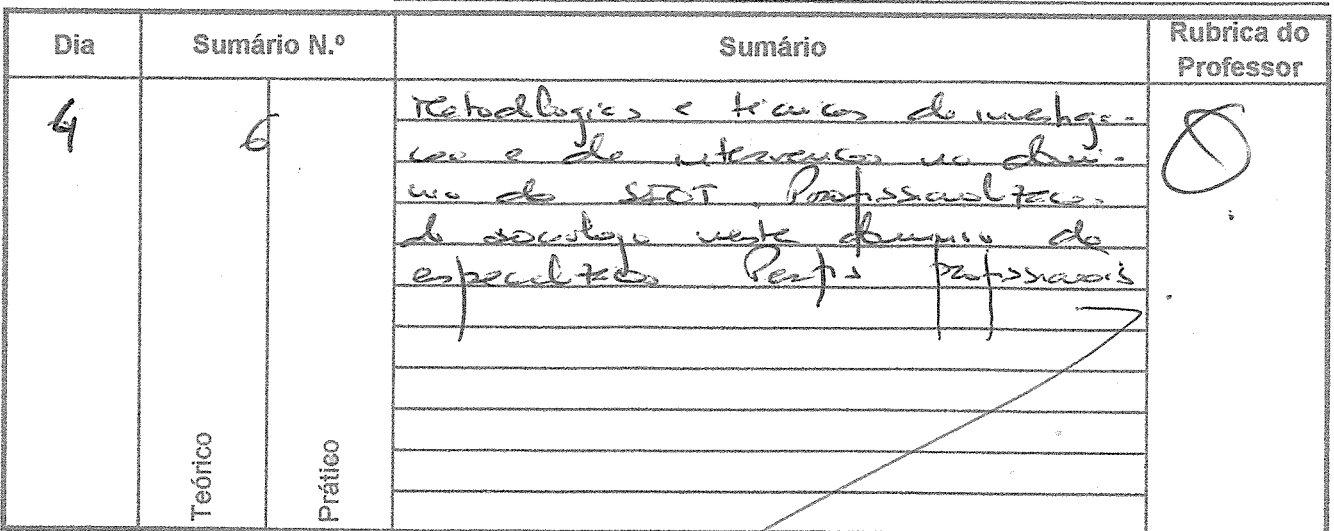 Dia
Sumário N.º
Sumário
Rubrica do
Professor
4
6
Metodologias e técnicas de investiga-
ção e de intervenção no domí-
nio do SEOT. Profissionalização
do sociólogo neste domínio de
especialização Perfis profissionais
Teórico
Prático